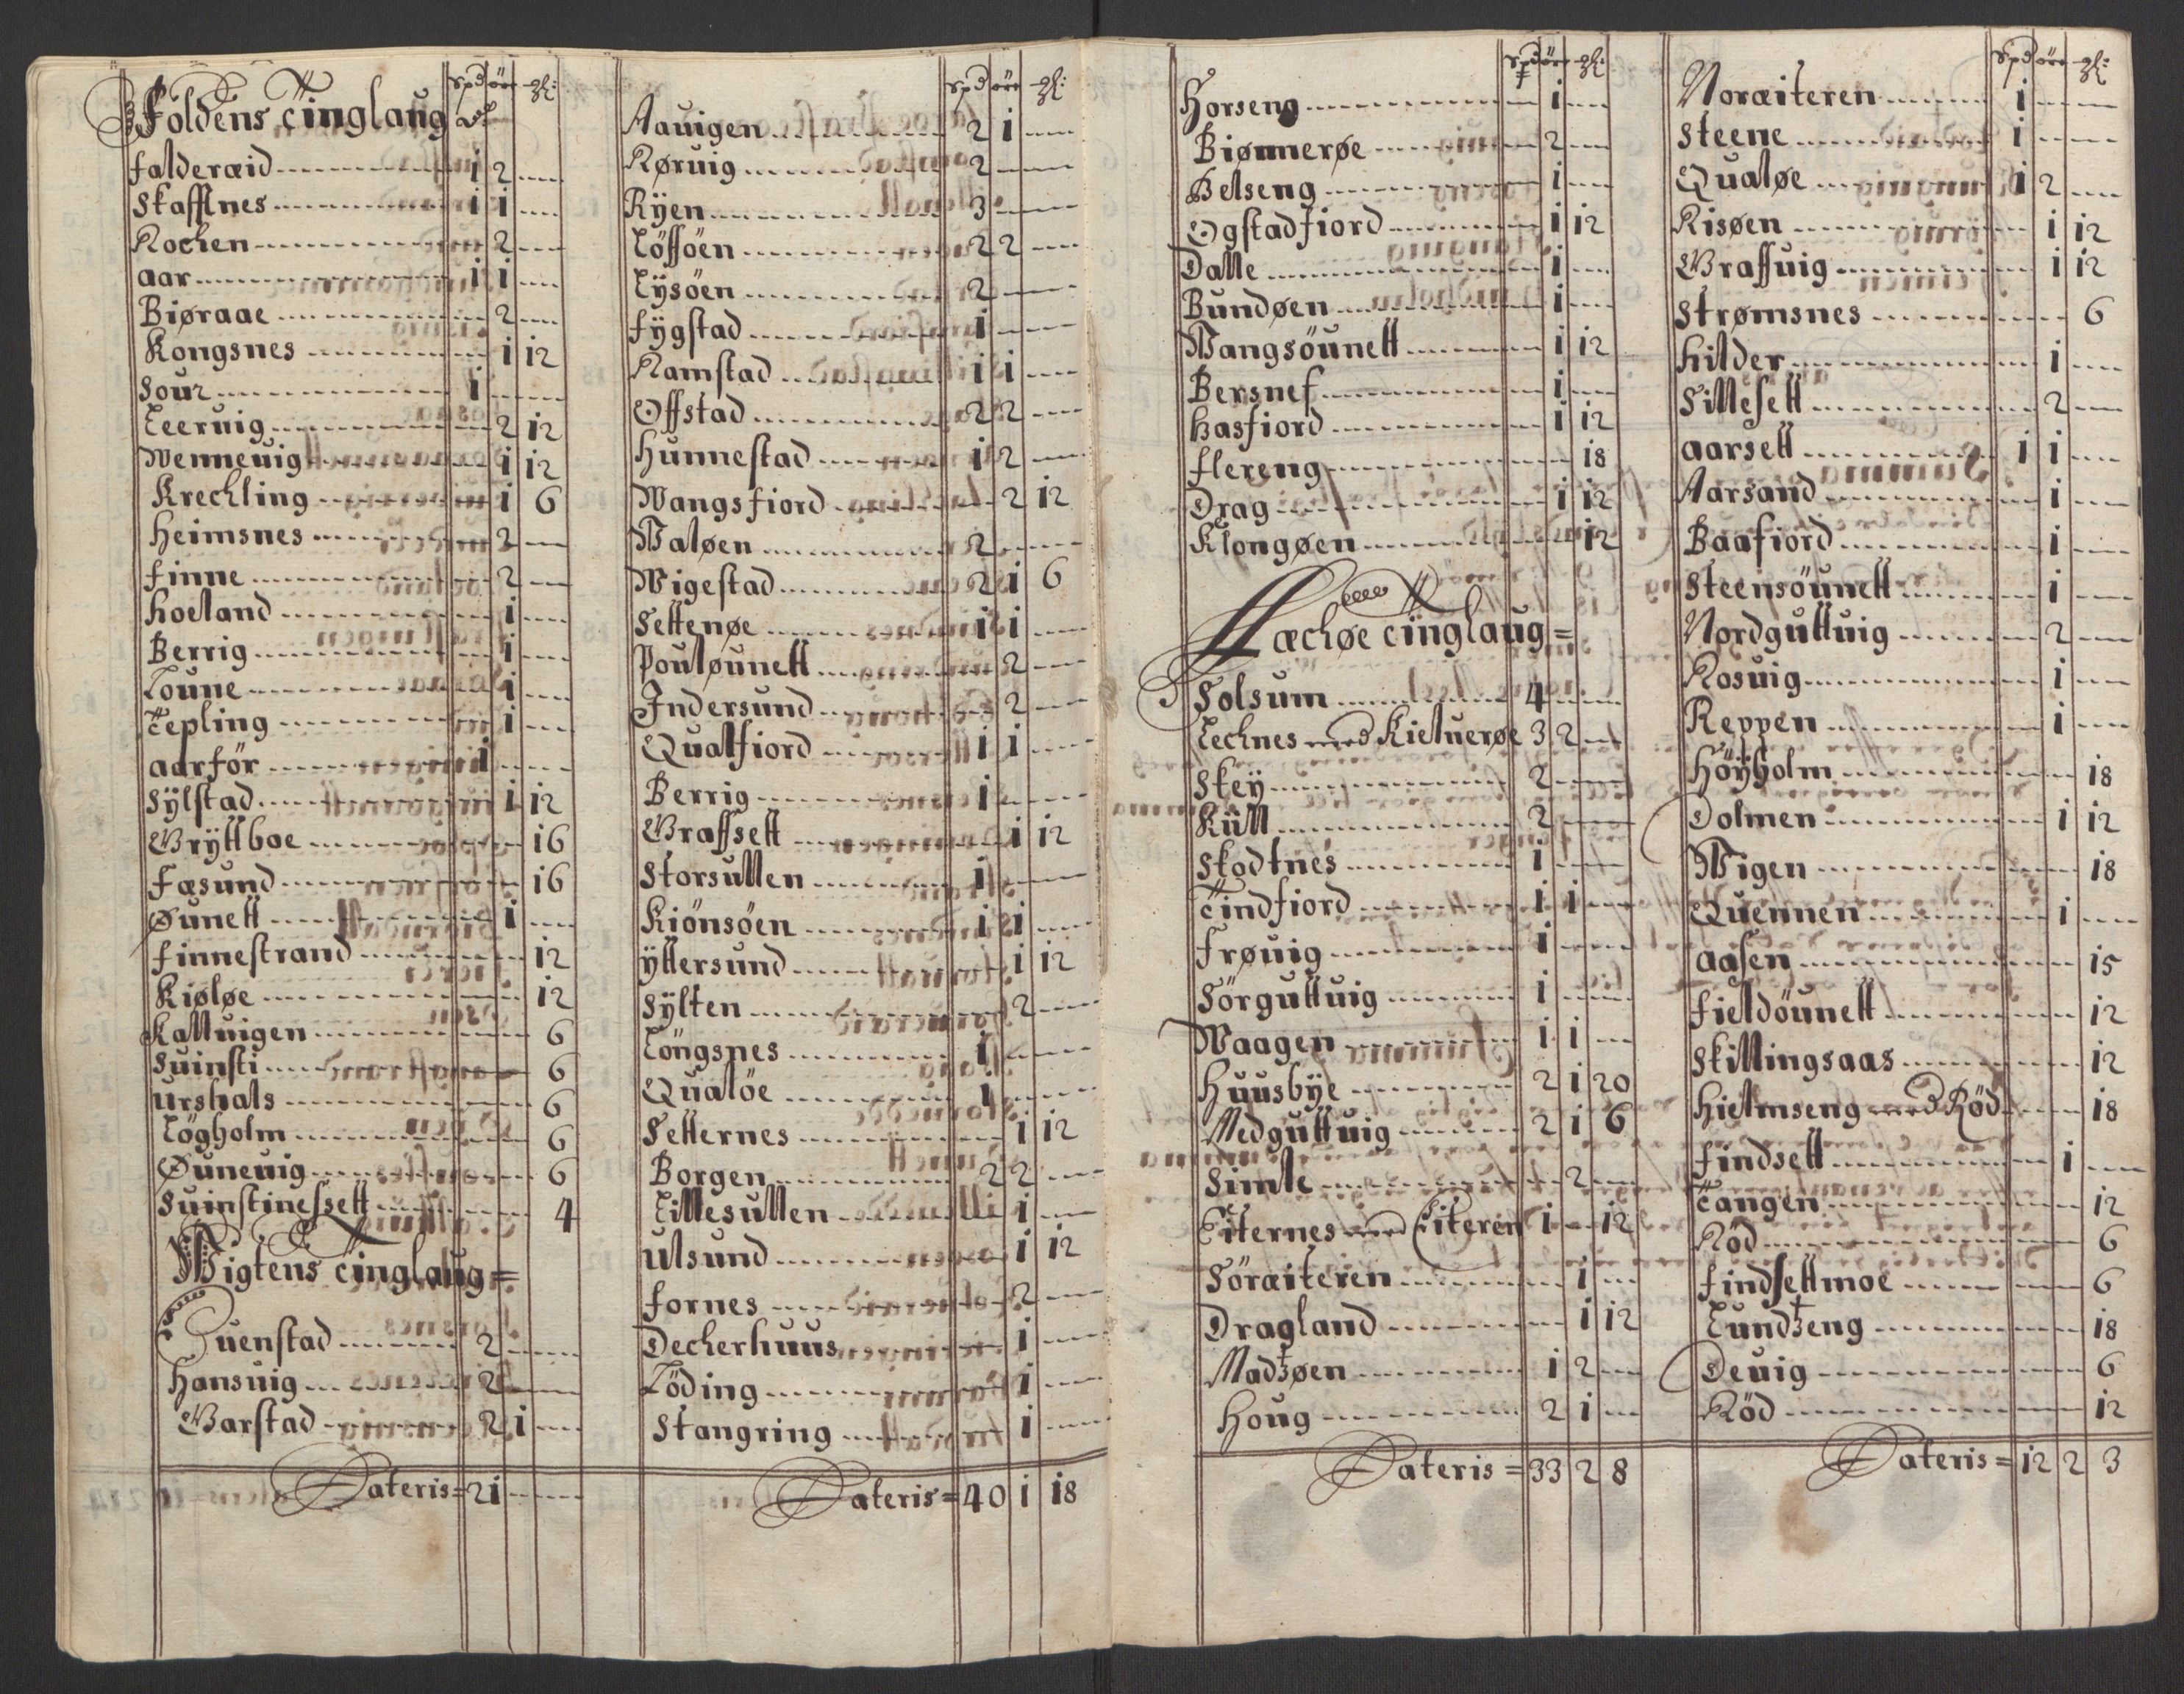 Spd öre gl:
Foldens tinglaug
falderæid 1 2
Skafflnes 1 1
Kochen 2
aar 1 1
Biøraae 2
Kongsnes 1 12
Sour 1
Leeruig 2 12
Wenneuig 1 12
Krechling 1 6
Heimsnes 2
finne 2
hoeland 1
Berrig 1
Toune 1
Tepling 1
aarför 1
Sylstad 1 12
Gryttboe 16
Fæsund 16
Øunett 1
finnestrand 12
Kiøløe 12
Kattuigen 6
Suinsti 6
urshals 6
Løgholm 6
Øuneuig 6
Suinstinessett 4
Wigtens tinglaug =
Euenstad 2
Hansuig 2
Garstad 2 1
Lateris = 21
Spd öre gl:
Aauigen 2 1
Røruig 2
Ryen 3
Löfföen 2 2
Lysöen 2
fygstad 1
Ramstad 1 1
Offstad 2 2
Hunnestad 1 2
Wangsfiord 2 12
Waløen 2
Wigestad 2 1 6
Settenøe 1 1
Pouløunett 2
Indersund 2
Qualfiord 1 1
Berrig 1
Graffsett 1 12
Storsullen 1
Kiönsöen 1 1
yttersund 1 12
Sylten 2
Töngsnes 1
Qualöe 1
Setternes 1 12
Borgen 2 2
Lillesullen 1
ulsund 1 12
fornes 2
Deckerhuus 1
Löding 1
Stangring 1
Lateris = 40 1 18
Spd öre gl:
Horseng 1
Biønnerøe 2
Belseng 1
Ogstadfiord 1 12
Dalle 1
Bundøen 1
Wangsöunett 1 12
Bersnef 1
hasfiord 1 12
flereng 18
Drag 1 12
Klongøen 12
Næchøe tinglaug =
Solsum 4
Lechnes med Kieluerøe 3 2
Skey 2
Küll 2
Skodtnes 1
Tindfiord 1 1
frøuig 1
Sörguttuig 1
Waagen 1 1
Huusbye 2 1 20
Medguttuig 2 1 6
Simle 2
Eiternes med Eiteren 1 12
Söræiteren 1
Dragland 1 12
Madtzøen 1 2
Houg 2 1
Lateris = 33 2 8
Spd öre gl:
Noræiteren 1
Steene 1
Qualøe 1 2
Risøen 1 12
Graffuig 1 12
Strømsnes 6
hilder 1
Sillesett 2
aarsett 1 1
Aarsand 1
Baafiord 1
Steensöunett 1
Nordguttuig 2
Rosuig 1
Reppen 1
Höyholm 18
Dolmen 1 12
Wigen 18
Quennen 1
aasen 15
fieldöunett 12
Skillingsaas 12
Hielmseng med Röd 18
findsett 1
Tangen 12
Röd 6
findsettmoe 6
Lundtzeng 18
Deuig 6
Röd 12
Lateris = 12 2 3